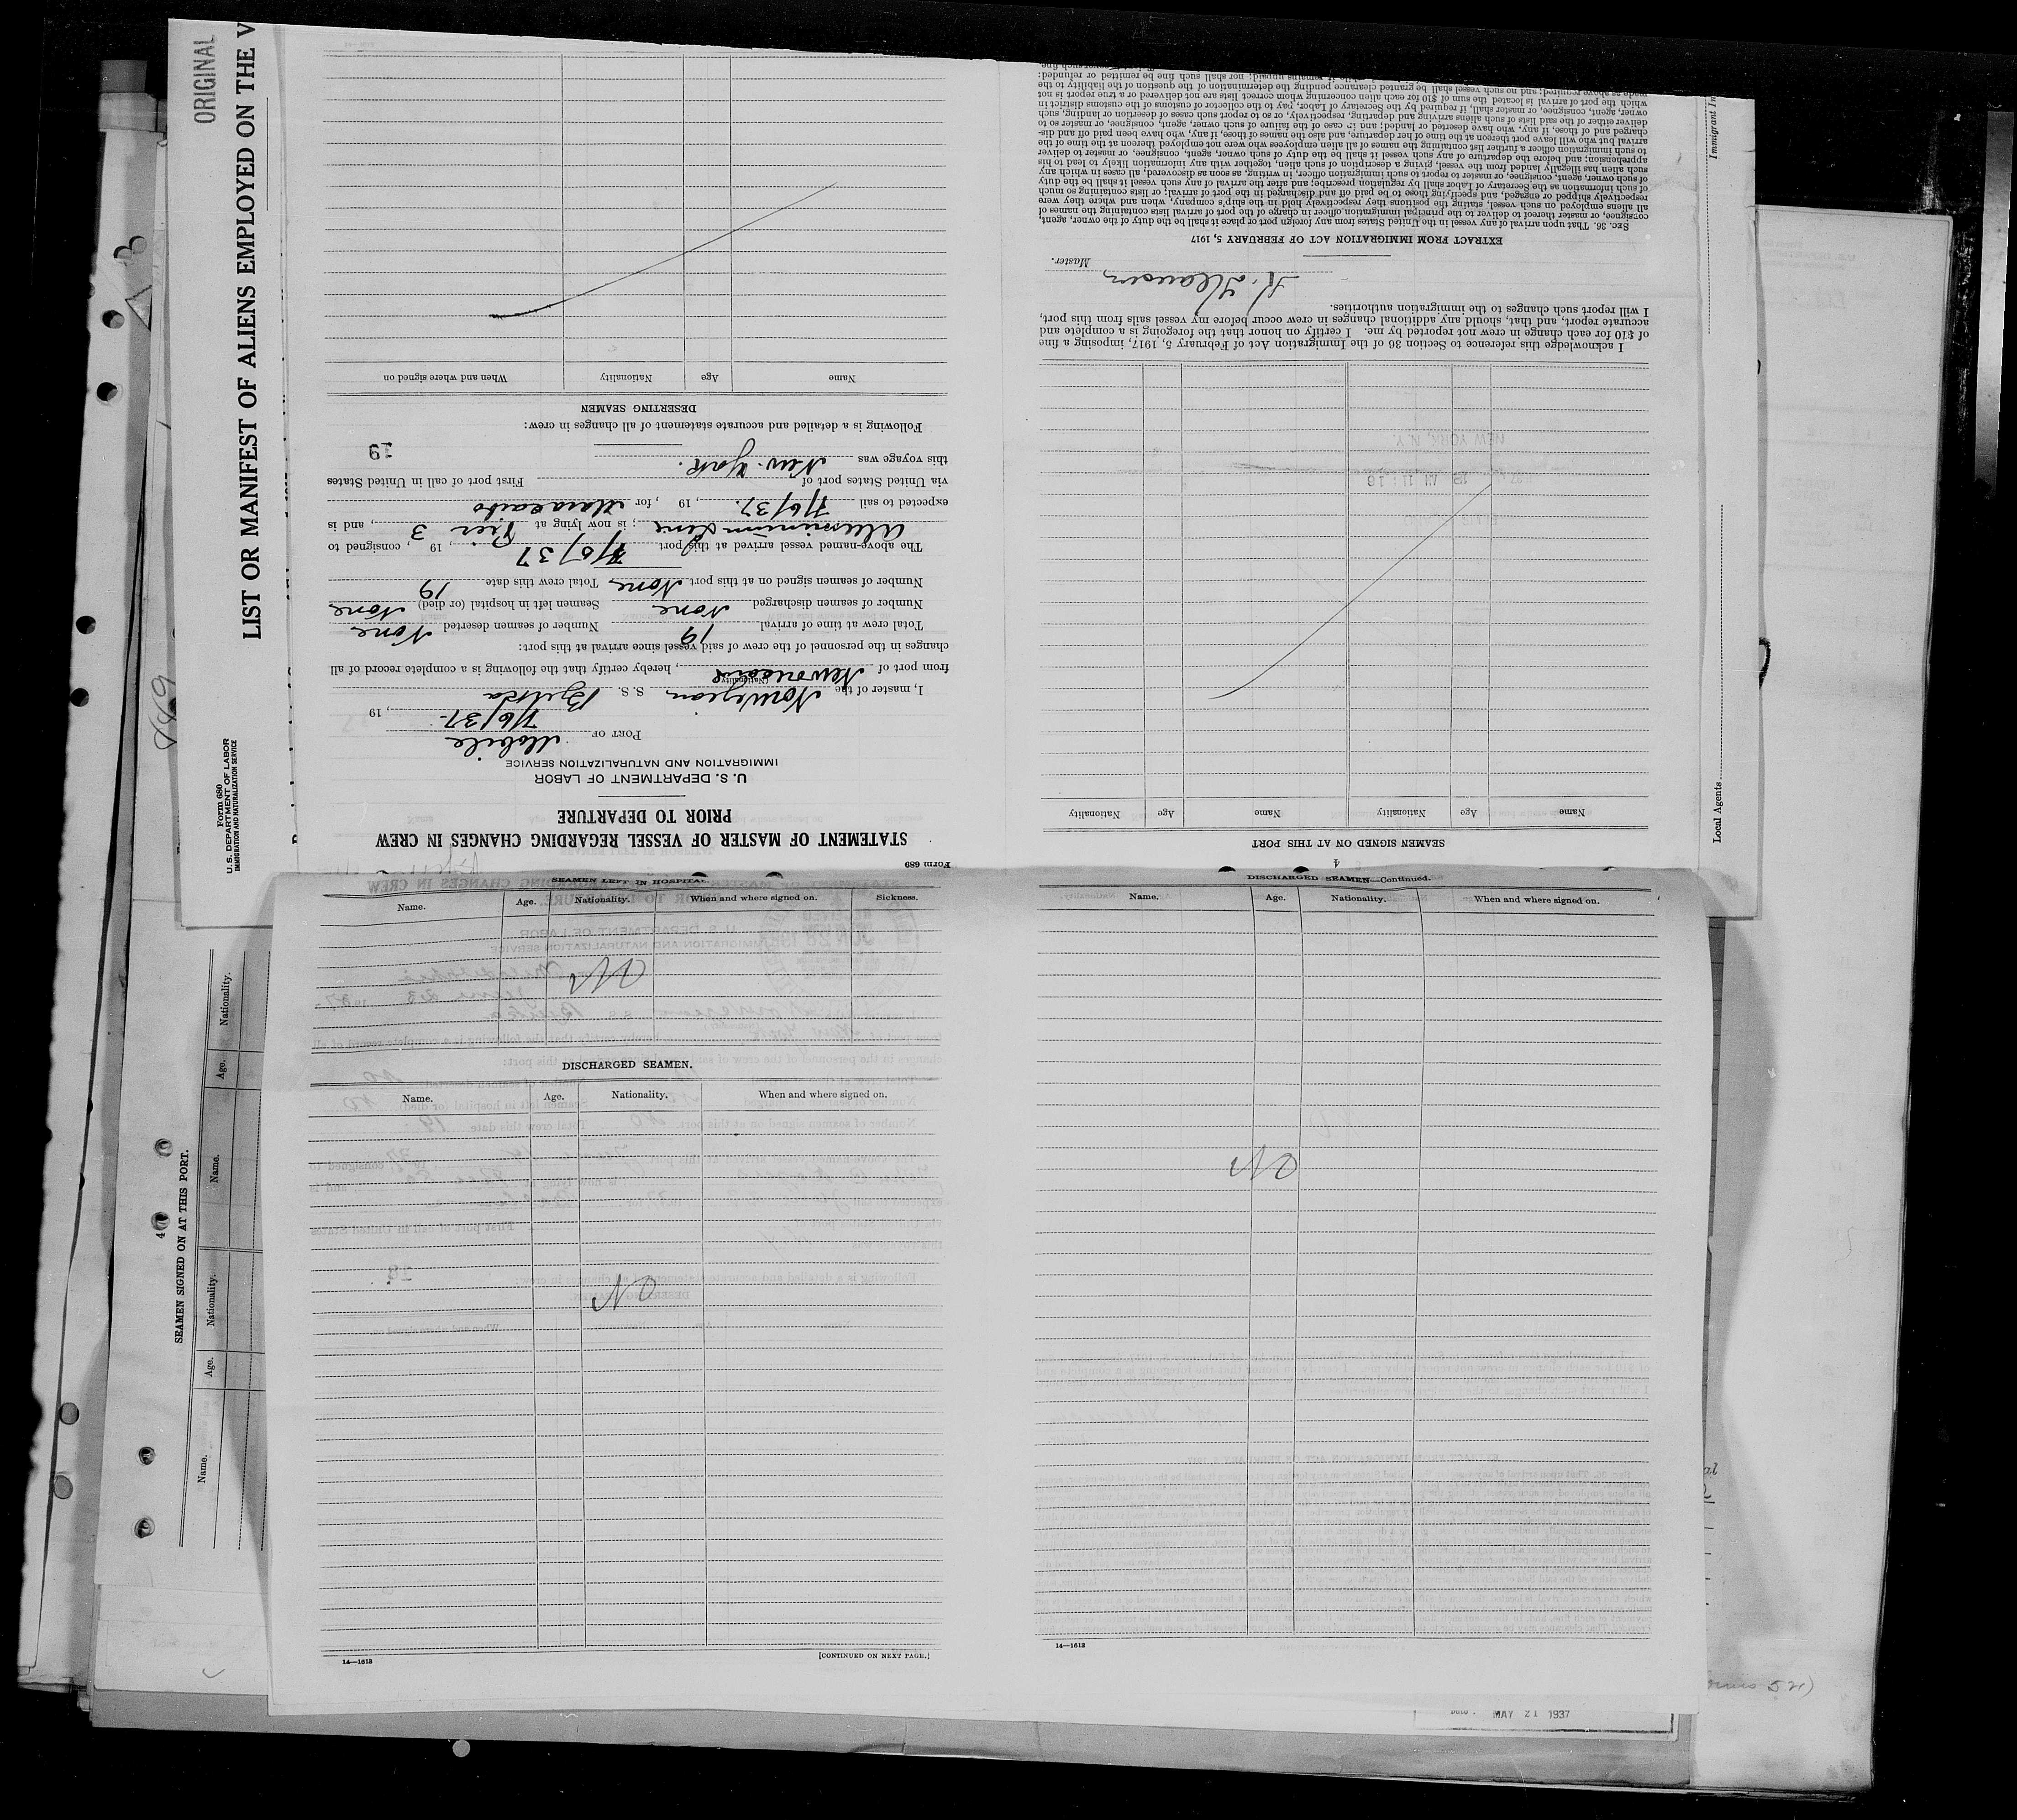 ORIGINAL
LIST OR MANIFEST OF ALIENS EMPLOYED ON THE V
Form 680
U. S. DEPARTMENT OF LABOR
IMMIGRATION AND NATURALIZATION SERVICE
Form 689
STATEMENT OF MASTER OF VESSEL REGARDING CHANGES IN CREW
PRIOR TO DEPARTURE
U. S. DEPARTMENT OF LABOR
IMMIGRATION AND NATURALIZATION SERVICE
PORT OF Mobile
7/6/37. , 19
I, master of the Norwegian S. S.
(Nationality)
from port of , hereby certify that the following is a complete record of all
changes in the personnel of the crew of said vessel since arrival at this port:
Total crew at time of arrival 19 Number of seamen deserted None
Number of seamen discharged None Seamen left in hospital (or died) None
Number of seamen signed on at this port None Total crew this date 19
The above-named vessel arrived at this port 7/6/37 , 19 , consigned to
Aluminium Line ; is now lying at Pier 3 , and is
expected to sail 7/6/37. , 19 , for Maracaibo
via United States port of First port of call in United States
this voyage was New York.
19
Following is a detailed and accurate statement of all changes in crew:
DESERTING SEAMEN
Name Age Nationality When and where signed on
4
SEAMEN SIGNED ON AT THIS PORT
Name Age Nationality Name Age Nationality
NEW YORK, N.Y.
I acknowledge this reference to Section 36 of the Immigration Act of February 5, 1917, imposing a fine
of $10 for each change in crew not reported by me. I certify on honor that the foregoing is a complete and
accurate report, and that, should any additional changes in crew occur before my vessel sails from this port,
I will report such changes to the immigration authorities.
Master.
EXTRACT FROM IMMIGRATION ACT OF FEBRUARY 5, 1917
SEC. 36. That upon arrival of any vessel in the United States from any foreign port or place it shall be the duty of the owner, agent,
cosignee, or master thereof to deliver to the principal immigration officer in charge of the port of arrival lists containing the names of
all aliens employed on such vessel, stating the positions they respectively hold in the ship's company, when and where they were
respectively shipped or engaged, and specifying those to be paid off and discharged in the port of arrival; or lists containing so much
of such information as the Secretary of Labor shall by regulation prescribe; and after the arrival of any such vessel it shall be the duty
of such owner, agent, consignee, or master to report to such immigration officer, in writing, as soon as discovered, all cases in which any
such alien has illegally landed from the vessel, giving a description of such alien, together with any information likely to lead to his
apprehension; and before the departure of any such vessel it shall be the duty of such owner, agent, consignee, or master to deliver
to such immigration officer a further list containing the names of all alien employees who were not employed thereon at the time of the
arrival but who will leave port thereon at the time of her departure, and also the names of those, if any, who have been paid off and dis-
charged and of those, if any, who have deserted or landed; and in case of the failure of such owner, agent, consignee, or master so to
deliver either of the said lists of such aliens arriving and departing, respectively, or so to report such cases of desertion or landing, such
owner, agent, consignee, or master shall, if required by the Secretary of Labor, pay to the collector of customs of the customs district in
which the port of arrival is located the sum of $10 for each alien concerning whom correct lists are not delivered or a true report is not
made as above required; and no such vessel shall be granted clearance pending the determination of the question of the liability to the
remains unpaid; nor shall such fine be remitted or refunded:
Immigrant In
Local Agents
SEAMEN LEFT IN HOSPITAL.
Name. Age. Nationality. When and where signed on. Sickness.
DISCHARGED SEAMEN.
Name. Age. Nationality. When and where signed on.
NO
14—1613
[CONTINUED ON NEXT PAGE.]
DISCHARGED SEAMEN—Continued.
Name. Age. Nationality. When and where signed on.
NO
14—1613
4
SEAMEN SIGNED ON AT THIS PORT.
Name. Age. Nationality. Name. Age. Nationality.
MAY 21 1937